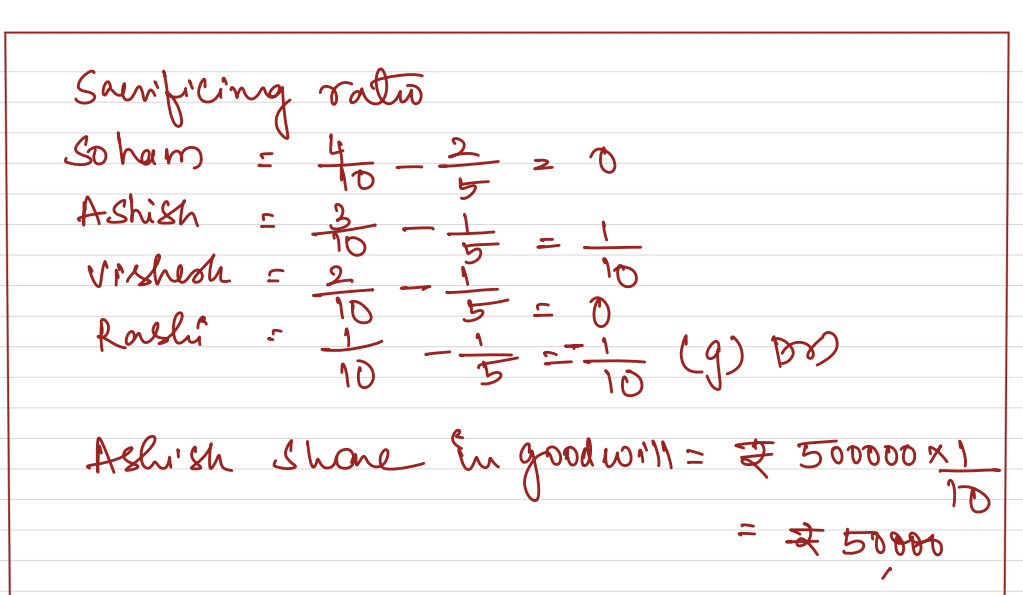 Sacrificing ratio
Soham = 4/10 - 2/5 = 0
Ashish = 3/10 - 1/5 = 1/10
Vishesh = 2/10 - 1/5 = 0
Rashi = 1/10 - 1/5 = -1/10 (g) Dr
Ashish share in goodwill = ₹ 500000 × 1/10
= ₹ 50,000